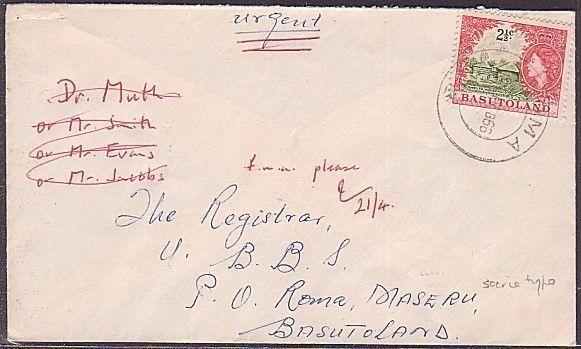 urgent
2½c
BASUTOLAND
MA
966
Dr. Muth
or Mr. Smith
or Mr. Evans
or Mr. Jacobs
f.n.a. please
21/4.
The Registrar,
U. B. B. S.
P. O. Roma, MASERU,
BASUTOLAND.
scarce type